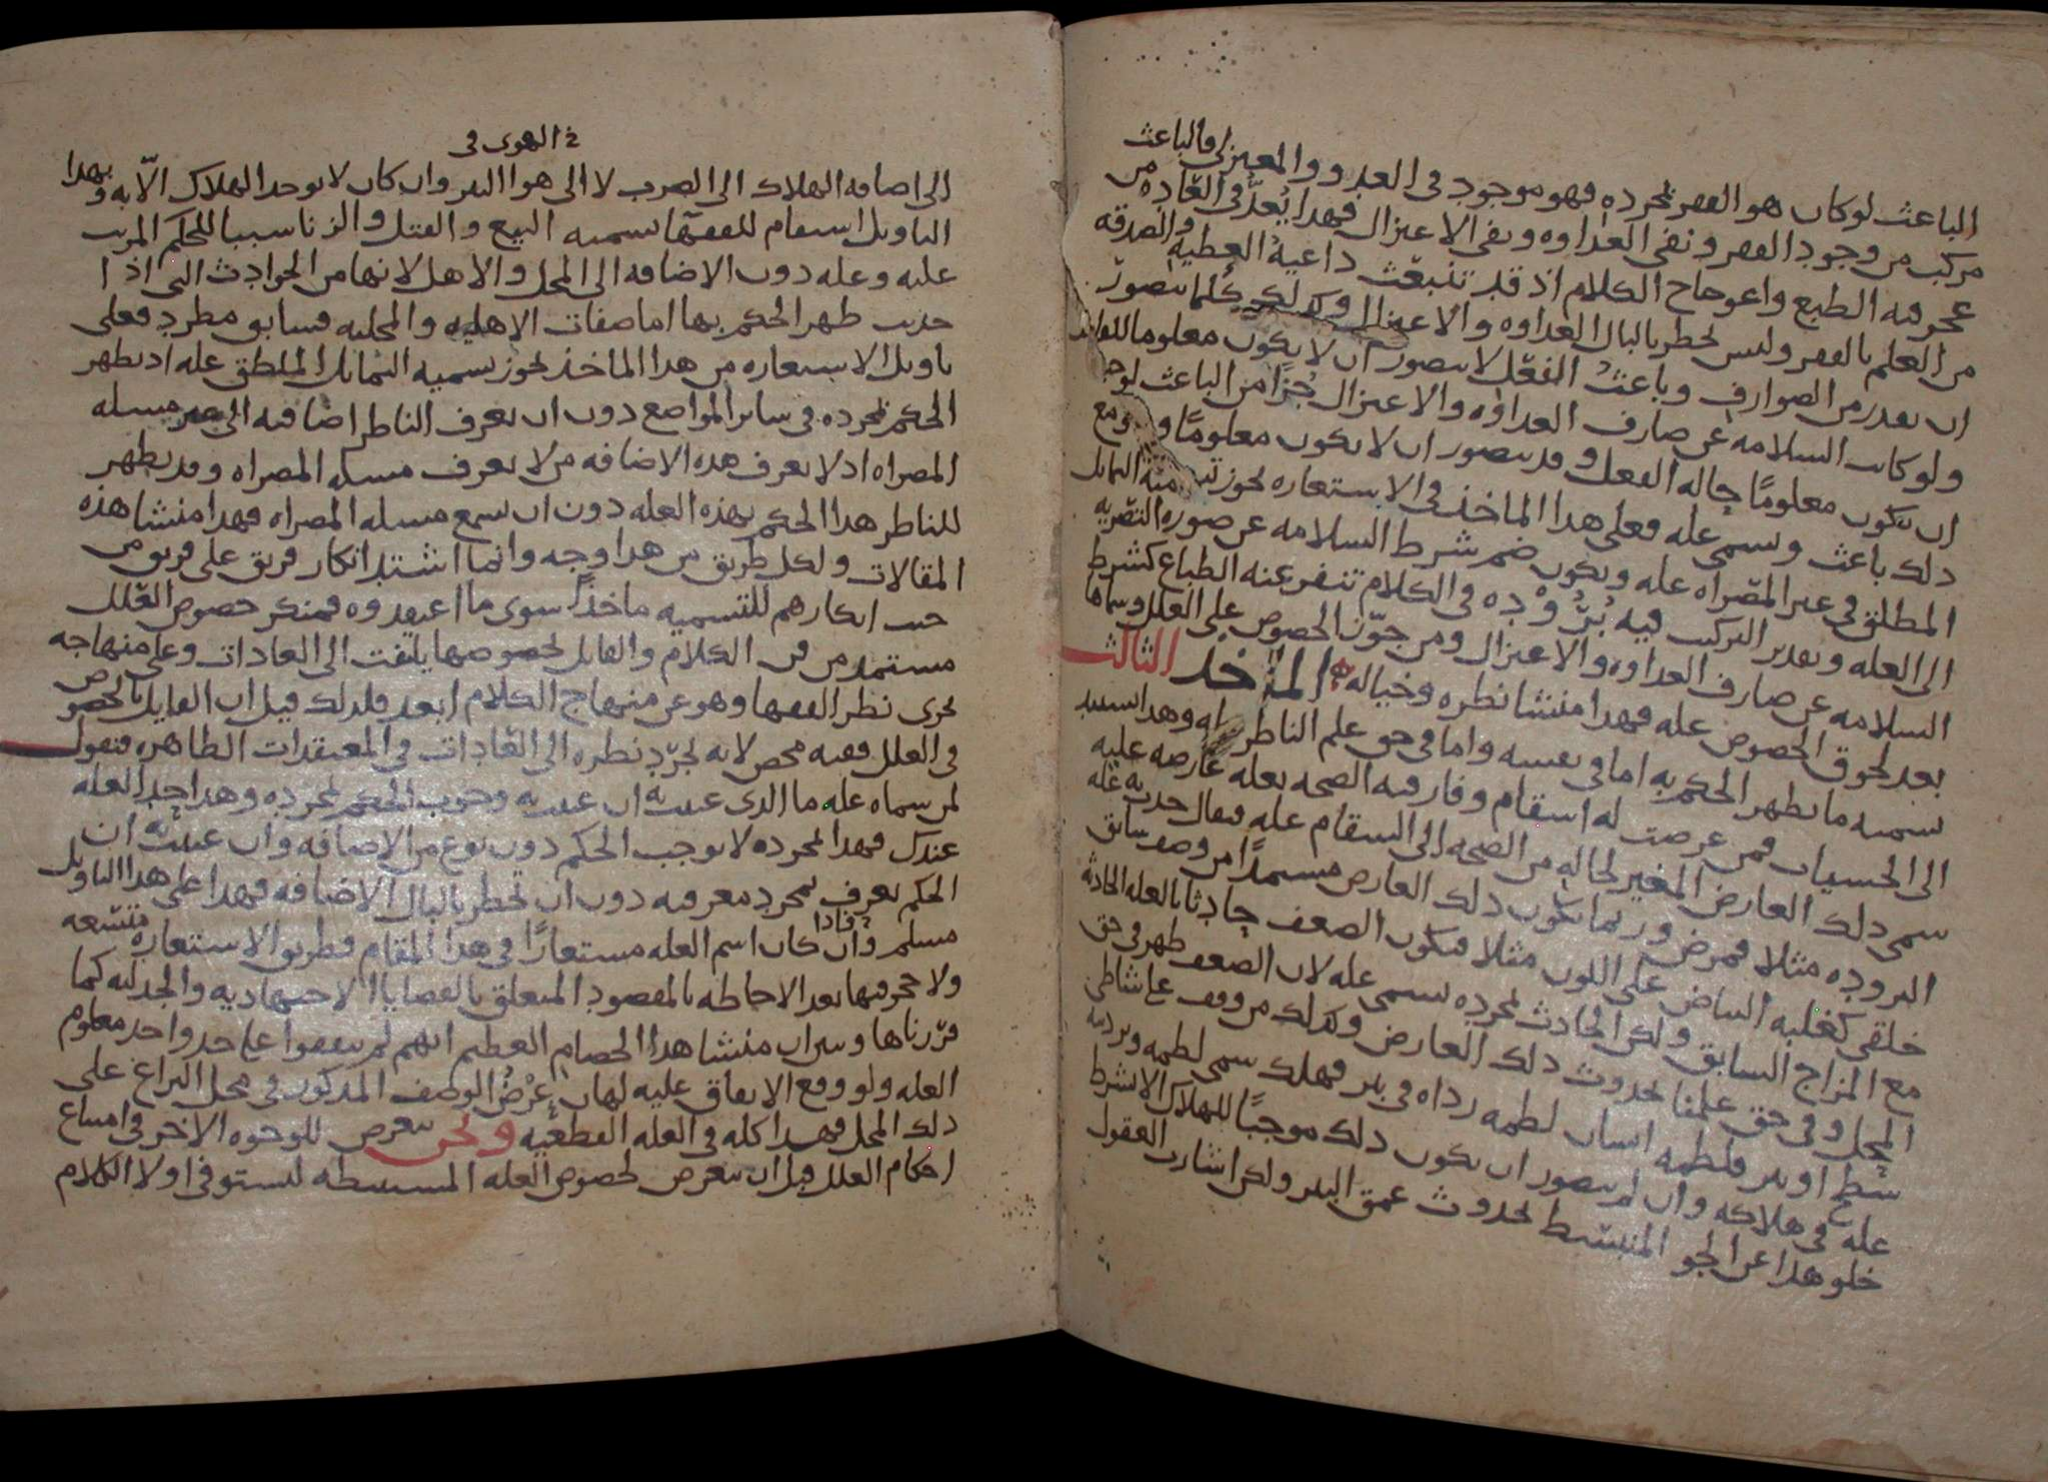 الباعث لو كان هو الفقر بمجرده فهو موجود في العدو والمعتزلي فالباعث
مركب من وجود الفقر ونفي العداوة ونفي الاعتزال فهذا يُعدّ في العادة من
عجرفة الطبع واعوجاج الكلام اذ قد تنبعث داعية العطية والصدقة
من العلم بالفقر وليس يخطر بالبال العداوة والاعتزال وكذلك كلما يتصور
ان يعدّ من الصوارف وباعث الفعل لا يتصور ان لا يكون معلوما للفاعل
ولو كانت السلامة عن صارف العداوة والاعتزال جُزأ من الباعث لوجب
ان يكون معلومًا حالة الفعل وقد يتصور ان لا يكون معلومًا ومع
ذلك باعث وسمي علة فعلى هذا الماخذ في الاستعارة يجوز تسمية التماثل
المطلق في غير المصراة علة ويكون ضم شرط السلامة عن صورة التصرية
الى العلة وتقدير التركيب فيه بُرُودة في الكلام تنفر عنه الطباع كشرط
السلامة عن صارف العداوة والاعتزال ومن جوّز الخصوص على العلل وسماها
بعد لحوق الخصوص علة فهذا منشا نظره وخياله الماخذ الثالث
تسمية ما يظهر الحكم به اما في نفسه واما في حق علم الناظر علة وهذا استمد
الى الحسيات فمن عرضت له اسقام وفارقته الصحة بعلة عارضة عليه
سمي ذلك العارض المغير لحاله من الصحة الى السقام علة فيقال حدث به علة
البرودة مثلا فمرض وربما يكون ذلك العارض مستمدًا من وصف سابق
خلقي كغلبة البياض على اللون مثلا فيكون الضعف حادثا بالعلة الحادثة
مع المزاج السابق ولكن الحادث بمجرده يسمى علة لان الضعف ظهر في حق
المحل وفي حق علمنا بحدوث ذلك العارض وكذلك من وقف على شاطئ
شط او بير فلطمه انسان لطمة رداه في بير فهلك سمي لطمه وترديته
علة في هلاكه وان لم يتصور ان يكون ذلك موجبًا للهلاك الا بشرط
خلو هذا عن الجو المنبسط بحدوث عمق البير ولكن اشارت العقول
الهوي في
الى اضافة الهلاك الى الضرب لا الى هواء البير وان كان لا يوجد الهلاك الّا به وبهذا
التاويل استقام للفقهآ تسمية البيع والقتل والزنا سببا للحكم المرتب
عليه وعلة دون الاضافة الى المحل والاهل لانها من الحوادث التي اذا
حدثت ظهر الحكم بها اما صفات الاهلية والمحلية فسابق مطرد فعلى
تاويل الاستعارة من هذا الماخذ يجوز تسمية التماثل المطلق علة اذ يظهر
الحكم بمجرده في ساير المواضع دون ان يعرف الناظر اضافته الى غير مسلة
المصراة اذ لا يعرف هذه الاضافة من لا يعرف مسلة المصراة وقد يظهر
للناظر هذا الحكم بهذه العلة دون ان يسمع مسلة المصراة فهذا منشا هذه
المقالات ولكل طريق من هذا وجه وانما اشتد انكار فريق على فريق من
حيث انكارهم للتسمية ماخذًا سوى ما اعتقدوه فمنكر خصوص العلل
مستمد من فن الكلام والقايل بخصوصها يلتفت الى العادات وعلى منهاجه
يجري نظر الفقها وهو عن منهاج الكلام ابعد فلذلك قيل ان القايل بالخصوص
في العلل فقيه محض لانه يجرّد نظره الى العادات في المعتقدات الظاهرة فنقول
لمن سماه علة ما الذي عنيت به ان عنيت به وجوب الحكم بمجرده وهذا حد العلة
عندك فهذا بمجرده لا يوجب الحكم دون نوع من الاضافة وان عنيت به ان
الحكم يعرف بمجرد معرفته دون ان يخطر بالبال الاضافة فهذا على هذا التاويل
مسلم فاذا وان كان اسم العلة مستعارًا في هذا المقام فطريق الاستعارة متسعة
ولا حجر فيها بعد الاحاطة بالمقصود المتعلق بالقضايا الاجتهادية والجدلية كما
قرّرناها وسراب منشا هذا الخصام العظيم انهم لم يتفقوا على حد واحد معلوم
العلة ولو وقع الاتفاق عليه لهان عرْضُ الوصف المذكور في محل النزاع على
ذلك المحل فهذا كله في العلة القطعية ونحن نتعرض للوجوه الاخر في امتناع
احكام العلل قبل ان نتعرض لخصوص العلة المستنبطة لنستوفي اولا الكلام